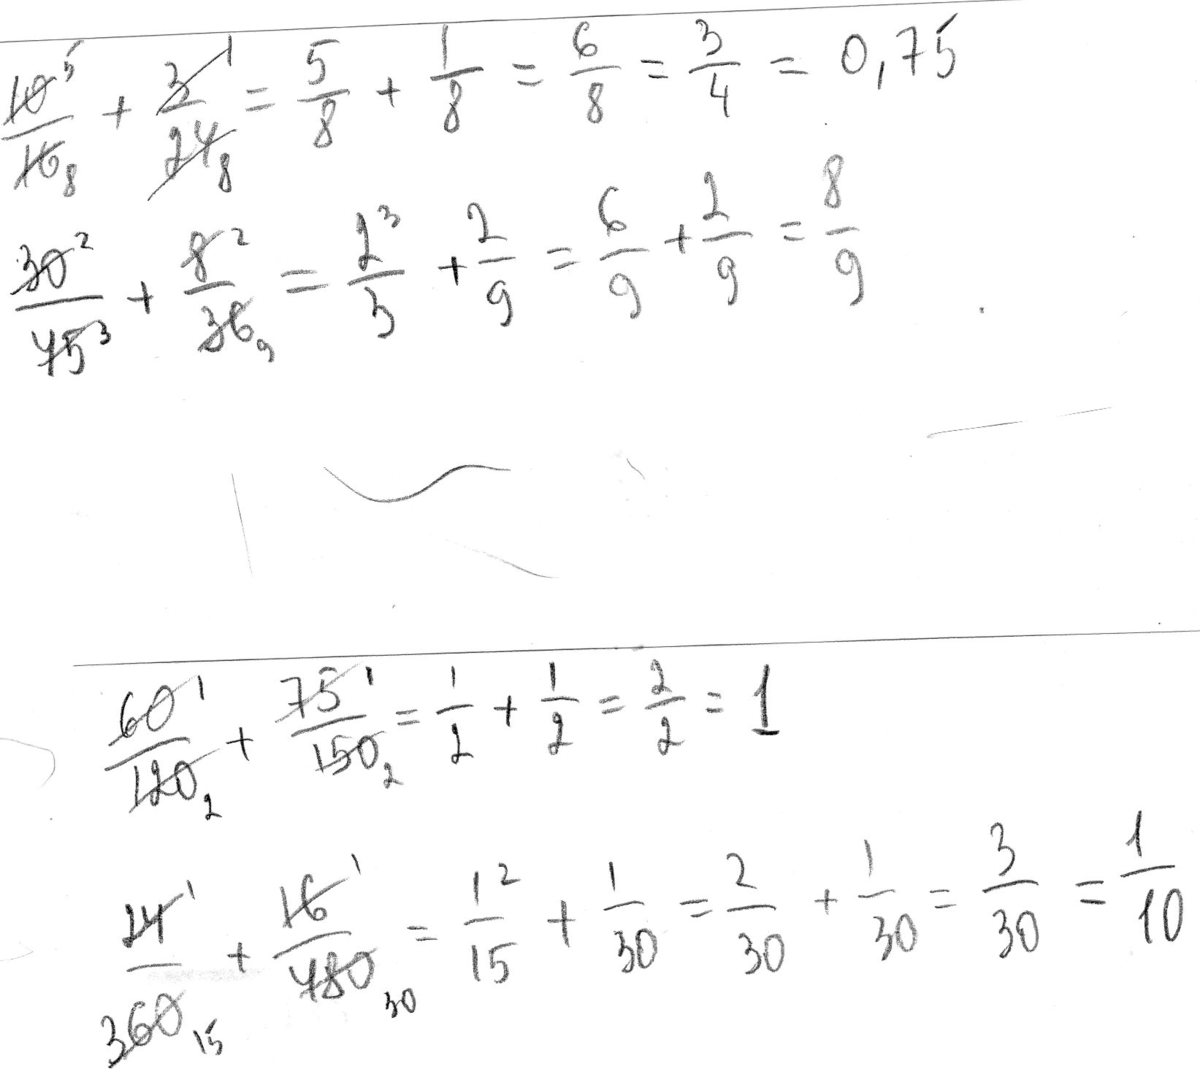 10⁵/16₈ + 3¹/24₈ = 5/8 + 1/8 = 6/8 = 3/4 = 0,75
30²/45³ + 8²/36₉ = 2³/3 + 2/9 = 6/9 + 2/9 = 8/9
60¹/120₂ + 75¹/150₂ = 1/2 + 1/2 = 2/2 = 1
24¹/360₁₅ + 16¹/480₃₀ = 1²/15 + 1/30 = 2/30 + 1/30 = 3/30 = 1/10